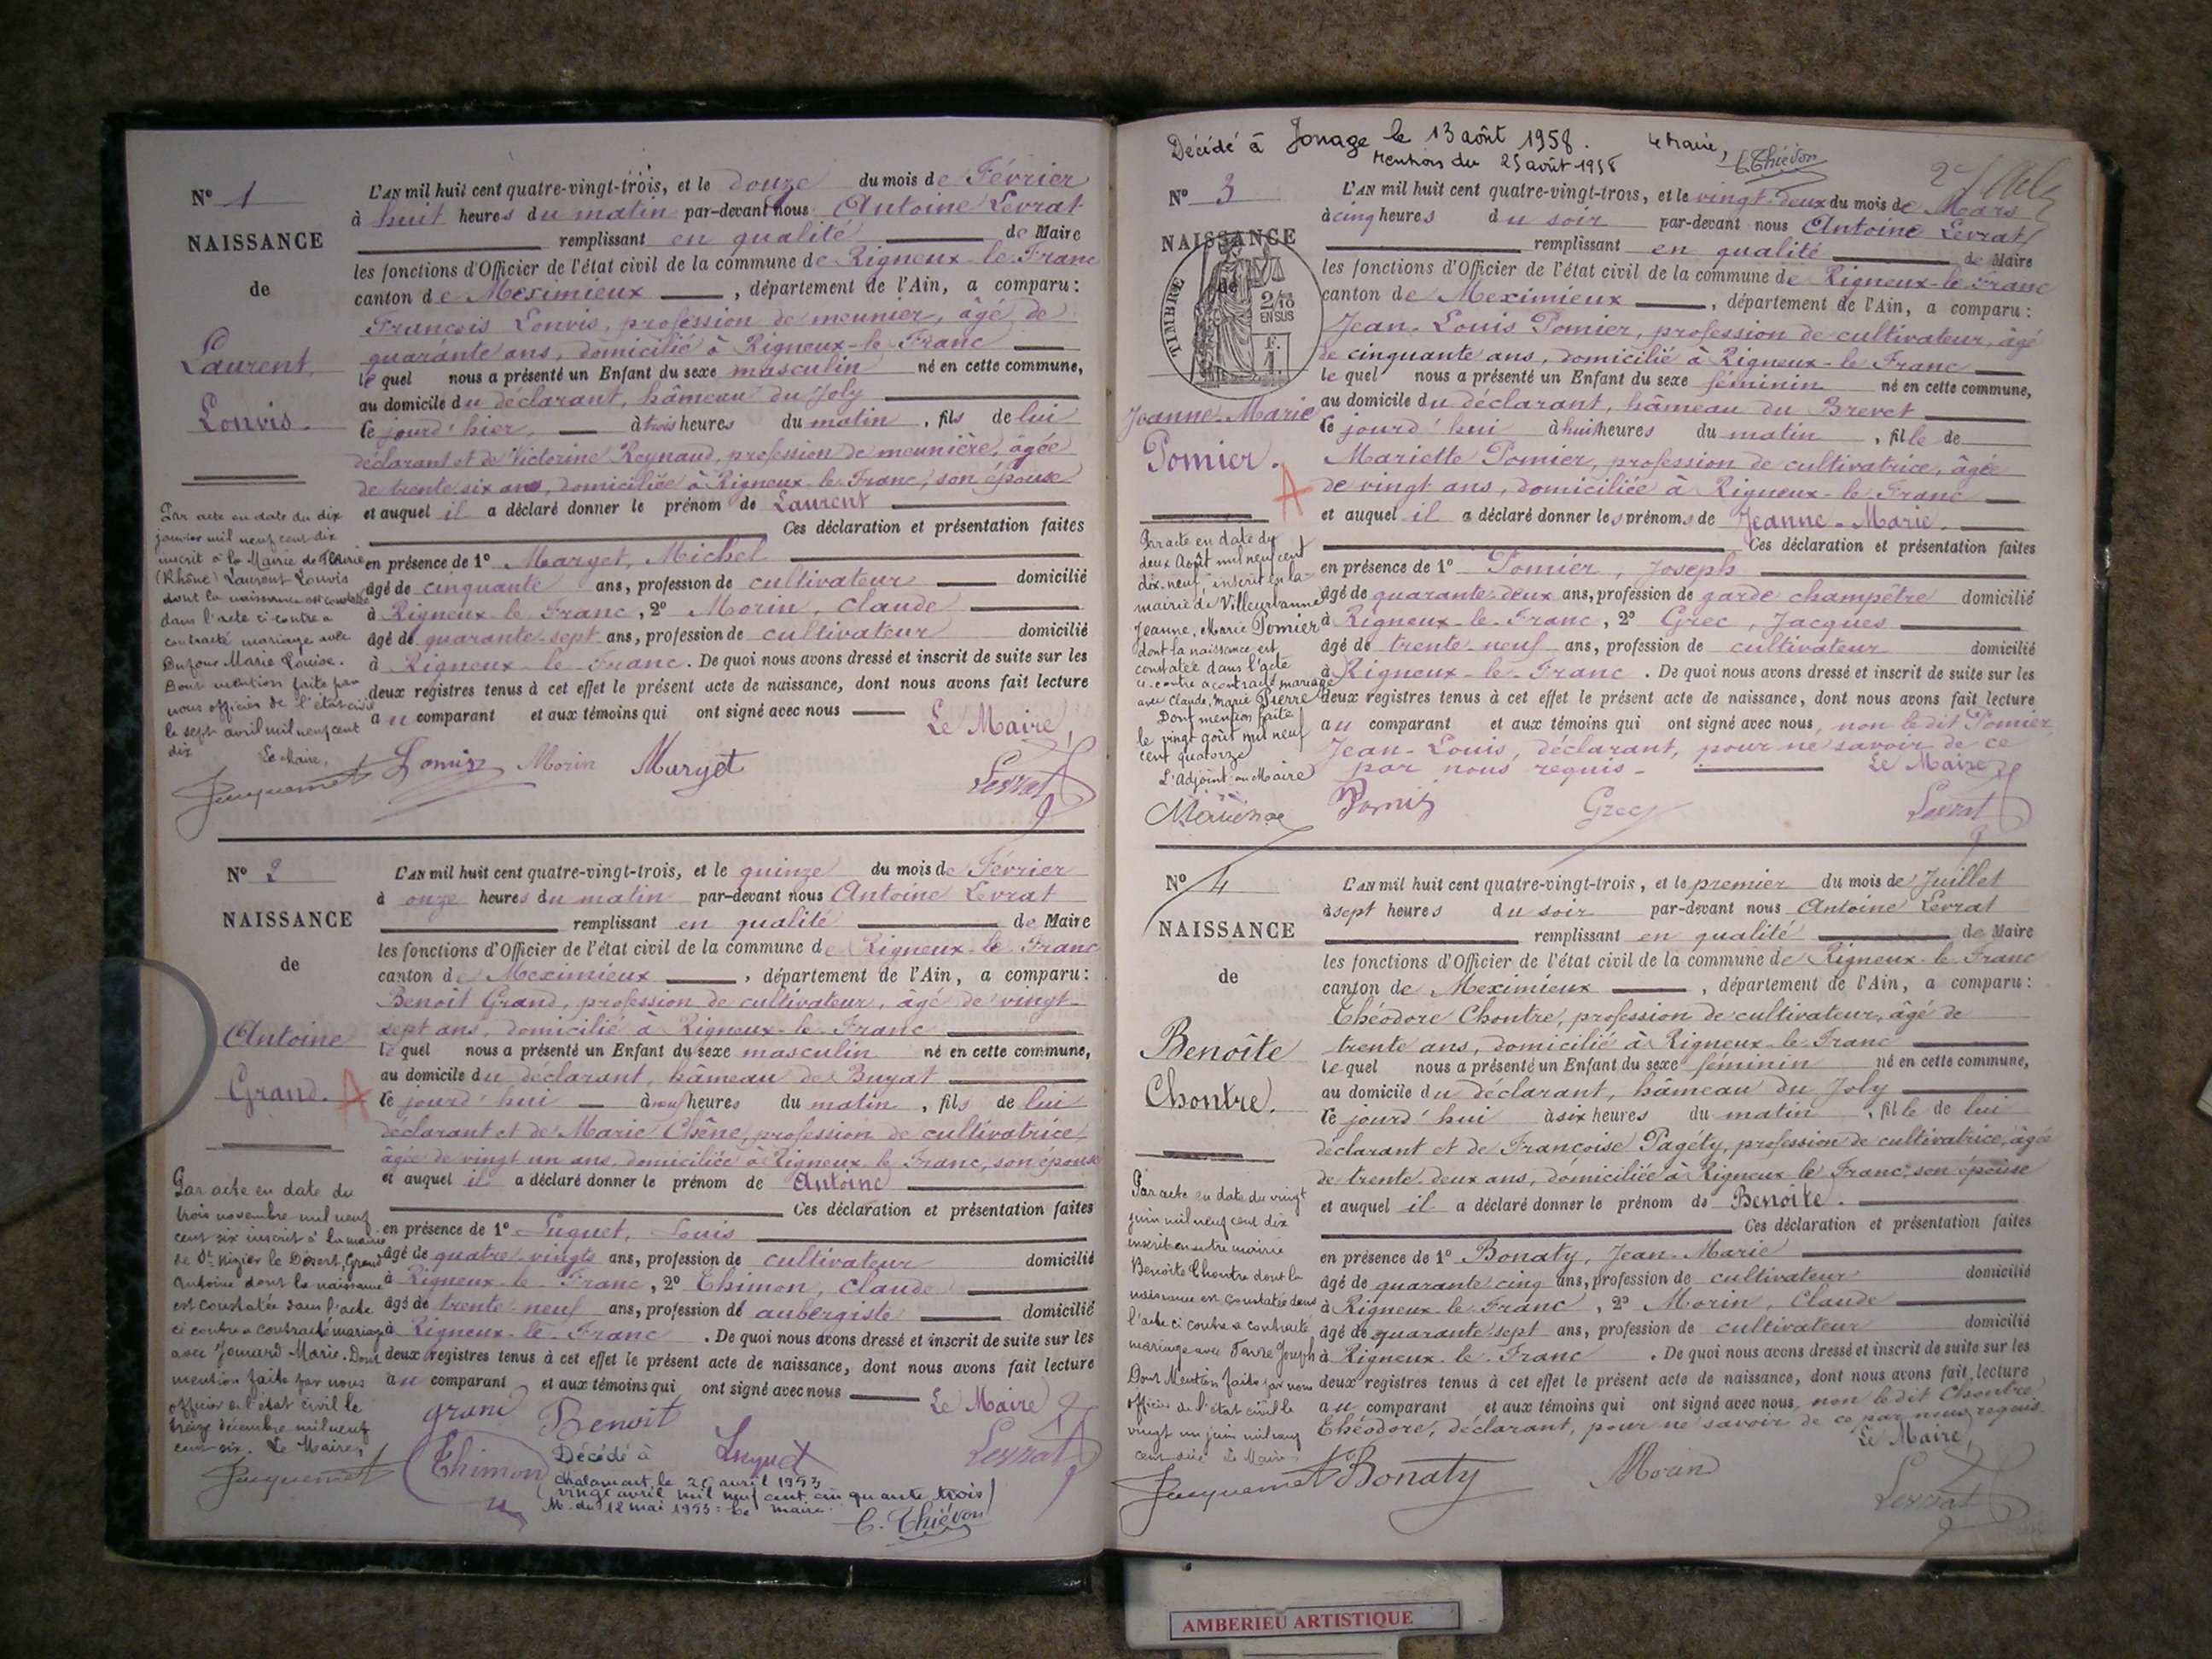 Nº 1
NAISSANCE
de
Laurent
Louvis.
L'AN mil huit cent quatre-vingt-trois, et le douze du mois de Février
à huit heures du matin par-devant nous Antoine Levrat
remplissant en qualité de Maire
les fonctions d'Officier de l'état civil de la commune de Rigneux-le-Franc
canton de Meximieux, département de l'Ain, a comparu:
François Louvis, profession de meunier, âgé de
quarante ans, domicilié à Rigneux-le-Franc
le quel nous a présenté un Enfant du sexe masculin né en cette commune,
au domicile du déclarant, hâmeau du Joly
ce jourd'hier, à trois heures du matin, fils de lui
déclarant et de Victorine Reynaud, profession de meunière, âgée
de trente six ans, domiciliée à Rigneux-le-Franc, son épouse
et auquel il a déclaré donner le prénom de Laurent
Ces déclaration et présentation faites
en présence de 1º Maryet, Michel
âgé de cinquante ans, profession de cultivateur domicilié
à Rigneux-le-Franc, 2º Morin, Claude
âgé de quarante-sept ans, profession de cultivateur domicilié
à Rigneux-le-Franc. De quoi nous avons dressé et inscrit de suite sur les
deux registres tenus à cet effet le présent acte de naissance, dont nous avons fait lecture
au comparant et aux témoins qui ont signé avec nous
Le Maire,
Morin Maryet Levrat
Par acte en date du dix
janvier mil neuf cent dix
inscrit à la Mairie de Fleurie
(Rhône) Laurent Louvis
dont la naissance est constatée
dans l'acte ci-contre a
contracté mariage avec
Dufour Marie Louise.
Dont mention faite par
nous officier de l'état civil
le sept avril mil neuf cent
dix Le Maire,
Jacquemet
Nº 2
NAISSANCE
de
Antoine
Grand. A
L'AN mil huit cent quatre-vingt-trois, et le quinze du mois de Février
à onze heures du matin par-devant nous Antoine Levrat
remplissant en qualité de Maire
les fonctions d'Officier de l'état civil de la commune de Rigneux-le-Franc
canton de Meximieux, département de l'Ain, a comparu:
Benoit Grand, profession de cultivateur, âgé de vingt-
sept ans, domicilié à Rigneux-le-Franc
le quel nous a présenté un Enfant du sexe masculin né en cette commune,
au domicile du déclarant, hâmeau de Buyat
ce jourd'hui à neuf heures du matin, fils de lui
déclarant et de Marie Chêne, profession de cultivatrice,
âgée de vingt un ans, domiciliée à Rigneux-le-Franc, son épouse
et auquel il a déclaré donner le prénom de Antoine
Ces déclaration et présentation faites
en présence de 1º Luguet, Louis
âgé de quatre-vingts ans, profession de cultivateur domicilié
à Rigneux-le-Franc, 2º Thimon, Claude
âgé de trente-neuf ans, profession de aubergiste domicilié
à Rigneux-le-Franc. De quoi nous avons dressé et inscrit de suite sur les
deux registres tenus à cet effet le présent acte de naissance, dont nous avons fait lecture
au comparant et aux témoins qui ont signé avec nous
Le Maire
grand Benoit
Thimon Luguet Levrat
Décédé à
Chalamont, le 20 avril 1953
(vingt avril mil neuf cent cinquante trois)
M. du 12 mai 1953: Le maire.
C. Thiévon
Par acte en date du
trois novembre mil neuf
cent six inscrit à la mairie
de St Nizier le Désert, Grand
Antoine dont la naissance
est constatée dans l'acte
ci contre a contracté mariage
avec Jomard Marie. Dont
mention faite par nous
officier de l'état civil le
treize décembre mil neuf
cent six. Le Maire,
Jacquemet
Décédé à Jonage le 13 août 1958. Le Maire,
Mention du 25 août 1958 C. Thiévon
Nº 3
NAISSANCE
de
TIMBRE
2/10
EN SUS
F.
1
Jeanne-Marie
Pomier.
A
L'AN mil huit cent quatre-vingt-trois, et le vingt-deux du mois de Mars
à cinq heures du soir par-devant nous Antoine Levrat
remplissant en qualité de Maire
les fonctions d'Officier de l'état civil de la commune de Rigneux-le-Franc
canton de Meximieux, département de l'Ain, a comparu:
Jean-Louis Pomier, profession de cultivateur, âgé
de cinquante ans, domicilié à Rigneux-le-Franc
le quel nous a présenté un Enfant du sexe féminin né en cette commune,
au domicile du déclarant, hâmeau du Brevet
ce jourd'hui à huit heures du matin, fille de
Mariette Pomier, profession de cultivatrice, âgée
de vingt ans, domiciliée à Rigneux-le-Franc
et auquel il a déclaré donner les prénoms de Jeanne-Marie.
Ces déclaration et présentation faites
en présence de 1º Pomier, Joseph
âgé de quarante-deux ans, profession de garde champêtre domicilié
à Rigneux-le-Franc, 2º Grec, Jacques
âgé de trente-neuf ans, profession de cultivateur domicilié
à Rigneux-le-Franc. De quoi nous avons dressé et inscrit de suite sur les
deux registres tenus à cet effet le présent acte de naissance, dont nous avons fait lecture
au comparant et aux témoins qui ont signé avec nous, non le dit Pomier
Jean-Louis, déclarant, pour ne savoir de ce
par nous requis. Le Maire
Grec Levrat
Par acte en date du
deux Août mil neuf cent
dix-neuf inscrit en la
mairie de Villeurbanne
Jeanne, Marie Pomier
dont la naissance est
constatée dans l'acte
ci-contre a contracté mariage
avec Claude, Marie Pierre
Dont mention faite
le vingt août mil neuf
cent quatorze
L'Adjoint au Maire
Nº 4
NAISSANCE
de
Benoîte
Chontre.
L'AN mil huit cent quatre-vingt-trois, et le premier du mois de Juillet
à sept heures du soir par-devant nous Antoine Levrat
remplissant en qualité de Maire
les fonctions d'Officier de l'état civil de la commune de Rigneux-le-Franc
canton de Meximieux, département de l'Ain, a comparu:
Théodore Chontre, profession de cultivateur, âgé de
trente ans, domicilié à Rigneux-le-Franc
le quel nous a présenté un Enfant du sexe féminin né en cette commune,
au domicile du déclarant, hâmeau du Joly
ce jourd'hui à six heures du matin, fille de lui
déclarant et de Françoise Pagéty, profession de cultivatrice, âgée
de trente-deux ans, domiciliée à Rigneux-le-Franc, son épouse
et auquel il a déclaré donner le prénom de Benoîte.
Ces déclaration et présentation faites
en présence de 1º Bonaty, Jean-Marie
âgé de quarante-cinq ans, profession de cultivateur domicilié
à Rigneux-le-Franc, 2º Morin, Claude
âgé de quarante-sept ans, profession de cultivateur domicilié
à Rigneux-le-Franc. De quoi nous avons dressé et inscrit de suite sur les
deux registres tenus à cet effet le présent acte de naissance, dont nous avons fait lecture
au comparant et aux témoins qui ont signé avec nous, non le dit Chontre
Théodore, déclarant, pour ne savoir de ce par nous requis.
Le Maire,
Bonaty Morin Levrat
Par acte en date du vingt
juin mil neuf cent dix
inscrit en notre mairie
Benoîte Chontre dont la
naissance est constatée dans
l'acte ci contre a contracté
mariage avec Favre Joseph
Dont Mention faite par nous
officier de l'état civil le
vingt un juin mil neuf
cent dix Le Maire
Jacquemet
AMBERIEU ARTISTIQUE